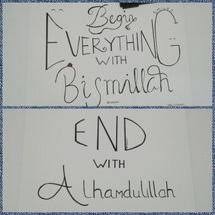 Begin
EVERYTHING
WITH
Bismillah
END
WITH
Alhamdulillah